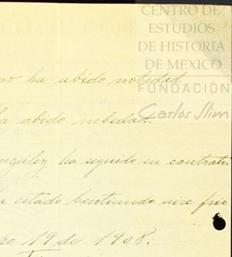 CENTRO DE
ESTUDIOS
DE HISTORIA
DE MEXICO
FUNDACIÓN
Carlos Slim
no ha abido nobedad
la abido nobedad.
ha seguido su contrato
estado benteando aire frio
ro 19 de 1908.